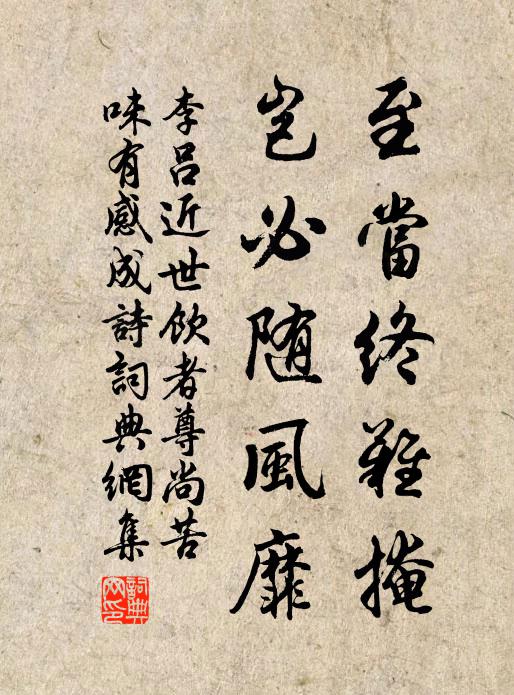 至當終難掩
豈必随風靡
李呂近世飲者尊尚苦
味有感成詩詞典網集
詞典
网印